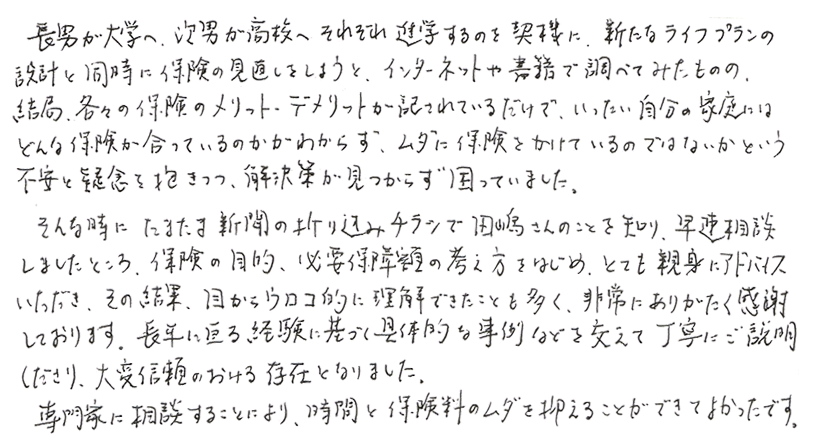 長男が大学へ、次男が高校へそれぞれ進学するのを契機に、新たなライフプランの
設計と同時に保険の見直しをしようと、インターネットや書籍で調べてみたものの、
結局、各々の保険のメリット・デメリットが記されているだけで、いったい自分の家庭には
どんな保険が合っているのかがわからず、ムダに保険をかけているのではないかという
不安と疑念を抱きつつ、解決策が見つからず困っていました。
そんな時にたまたま新聞の折り込みチラシで田嶋さんのことを知り、早速相談
しましたところ、保険の目的、必要保障額の考え方をはじめ、とても親身にアドバイス
いただき、その結果、目からウロコ的に理解できたことも多く、非常にありがたく感謝
しております。長年に亘る経験に基づく具体的な事例などを交えて丁寧にご説明
くださり、大変信頼のおける存在となりました。
専門家に相談することにより、時間と保険料のムダを抑えることができてよかったです。